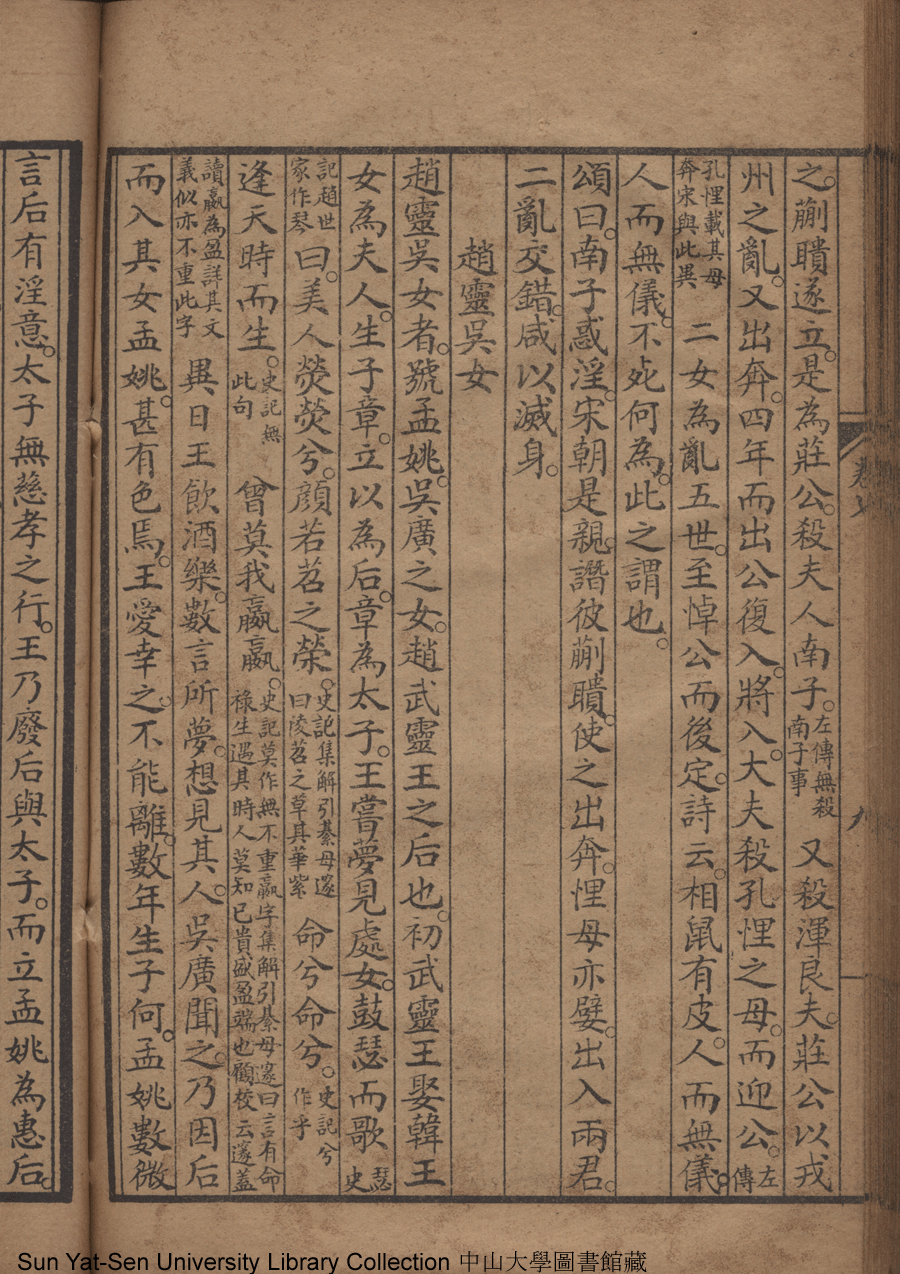 之。蒯聵遂立。是為莊公。殺夫人南子。左傳無殺南子事又殺渾良夫。莊公以戎
州之亂。又出奔。四年而出公復入。將入。大夫殺孔悝之母。而迎公。左傳
孔悝載其母奔宋與此異二女為亂五世。至悼公而後定。詩云。相鼠有皮。人而無儀。
人而無儀。不死何為。此之謂也。
頌曰。南子惑淫。宋朝是親。譖彼蒯聵。使之出奔。悝母亦嬖。出入兩君。
二亂交錯。咸以滅身。
趙靈吳女
趙靈吳女者。號孟姚。吳廣之女。趙武靈王之后也。初武靈王娶韓王
女為夫人。生子章。立以為后。章為太子。王嘗夢見處女。鼓瑟而歌瑟史
記趙世家作琴曰。美人熒熒兮。顏若苕之榮。史記集解引綦母邃曰陵苕之草其華紫命兮命兮。史記兮作乎
逢天時而生。史記無此句曾莫我嬴嬴。史記莫作無不重嬴字集解引綦母邃曰言有命祿生遇其時人莫知己貴盛盈端也顧校云邃蓋
讀嬴為盈詳其文義似亦不重此字異日王飲酒樂。數言所夢。想見其人。吳廣聞之。乃因后
而入其女孟姚。甚有色焉。王愛幸之。不能離。數年生子何。孟姚數微
言后有淫意。太子無慈孝之行。王乃廢后與太子。而立孟姚為惠后。
卷七
九
Sun Yat-Sen University Library Collection 中山大學圖書館藏